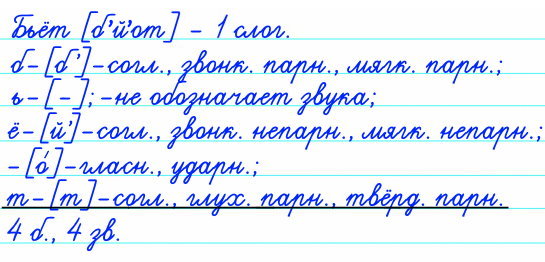 Бьёт [б'й'от] – 1 слог.
б–[б']–согл., звонк. парн., мягк. парн.;
ь–[–]; –не обозначает звука;
ё–[й']–согл., звонк. непарн., мягк. непарн.;
–[о́]–гласн., ударн.;
т–[т]–согл., глух. парн., твёрд. парн.
4 б., 4 зв.